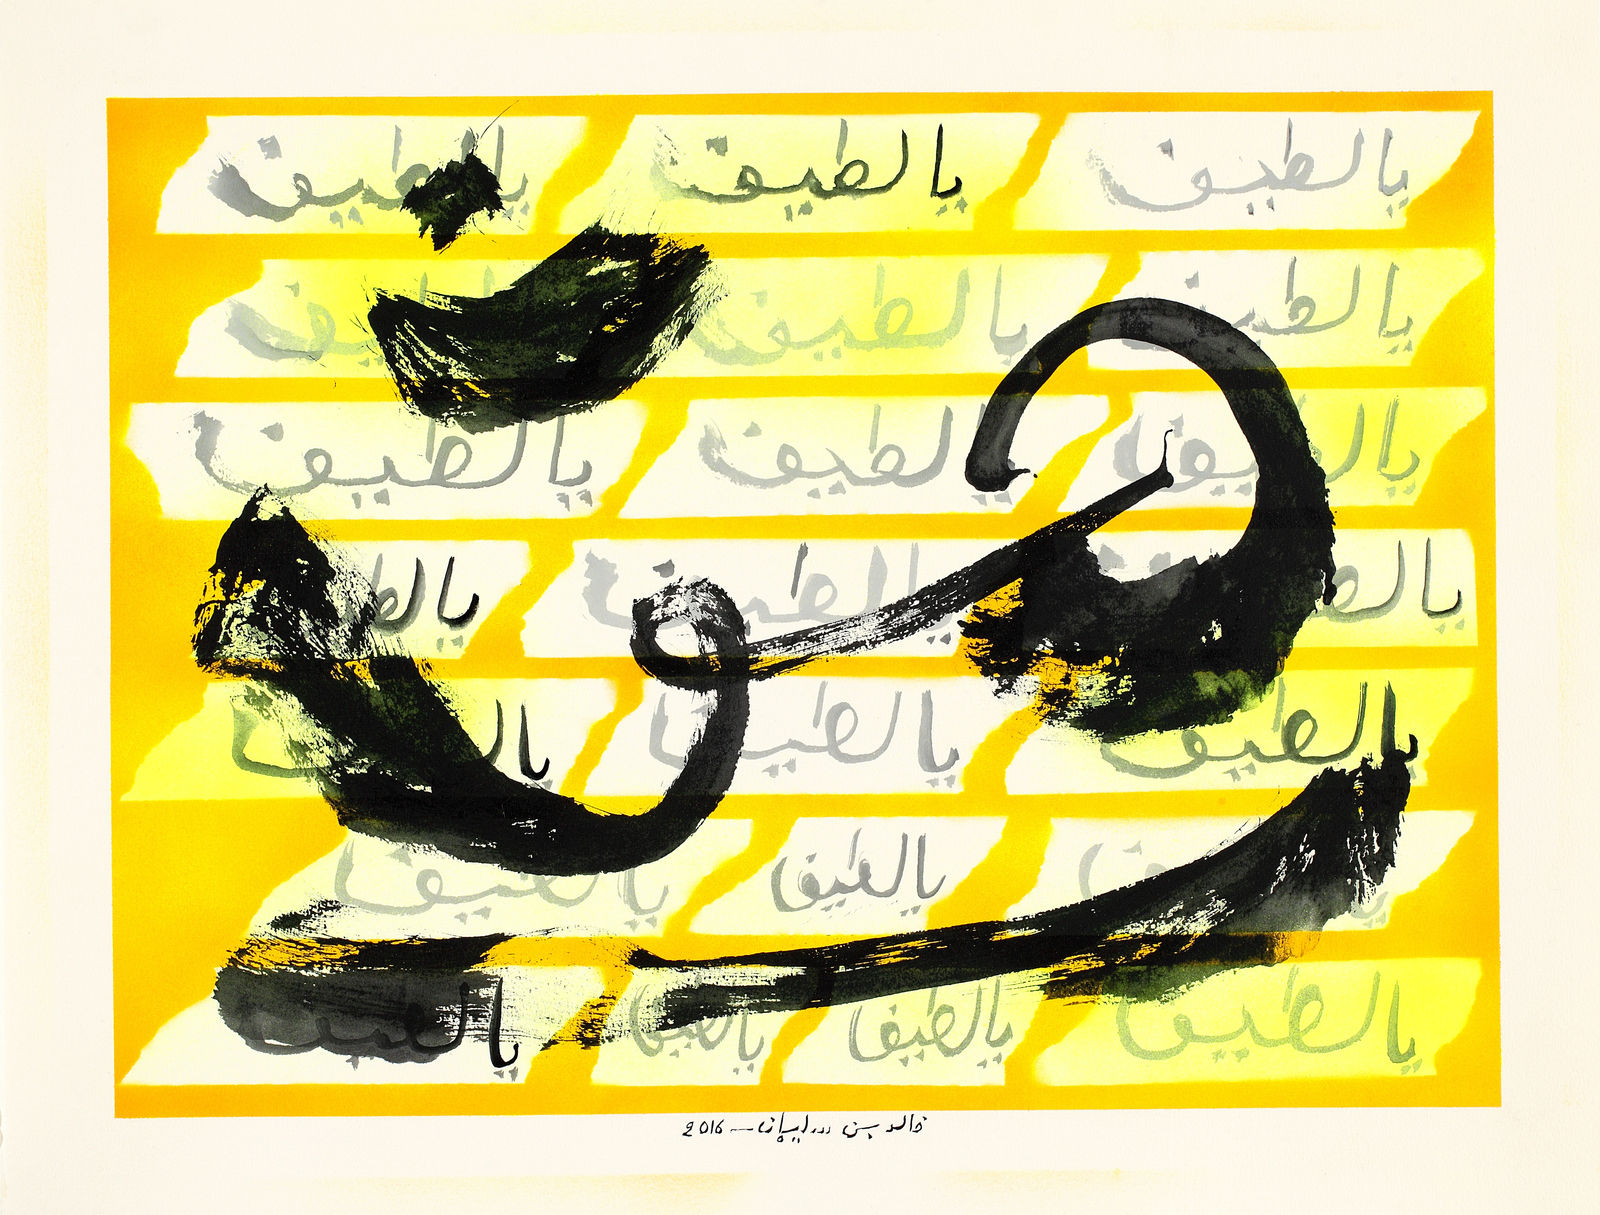 يا لطيف يا لطيف يا لطيف
يا لطيف يا لطيف يا لطيف
يا لطيف يا لطيف يا لطيف
يا لطيف يا لطيف يا لطيف
يا لطيف يا لطيف يا لطيف
يا لطيف يا لطيف
يا لطيف يا لطيف يا لطيف يا لطيف
خالد بن سليمان – 2016